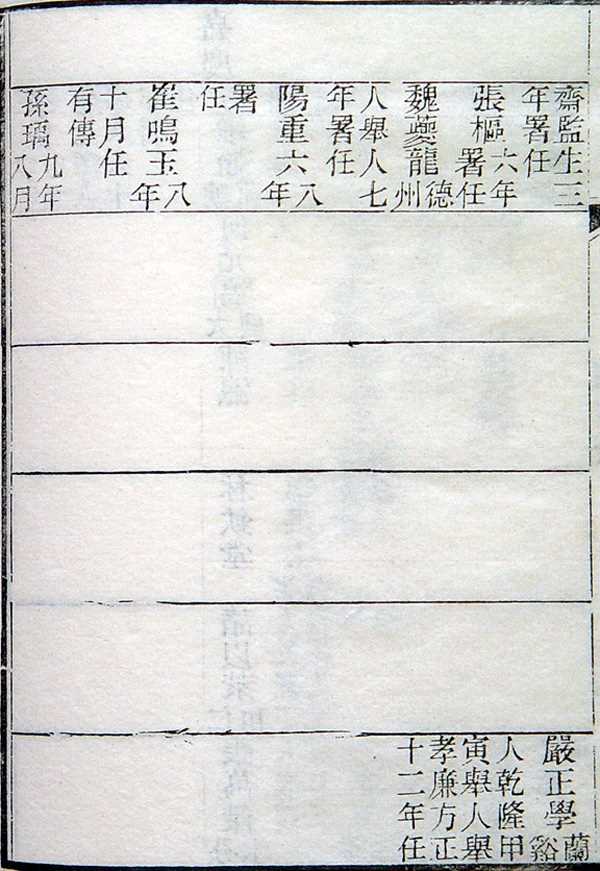 齋監生三
年署任
張樞六年署任
魏夔龍德州
人舉人七
年署任
陽重六八年
署
任
崔鳴玉八年
十月任
有傳
孫九年八月
嚴正學蘭谿
人乾隆甲
寅舉人舉
孝廉方正
十二年任